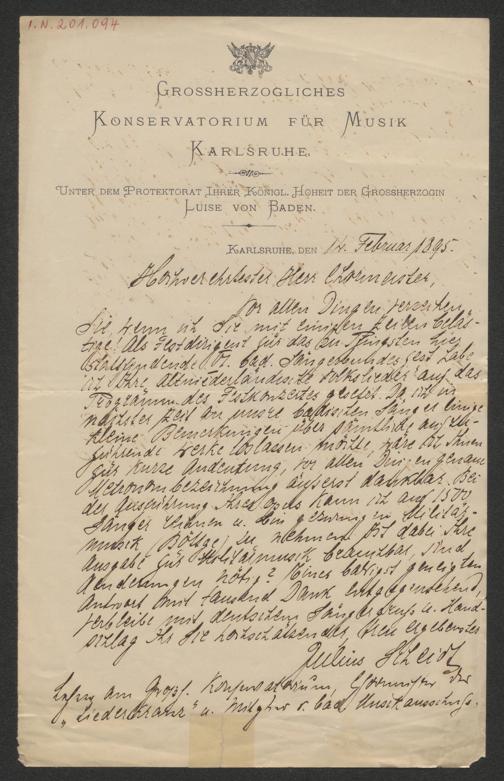 I.N.201.094
GROSSHERZOGLICHES
KONSERVATORIUM FÜR MUSIK
KARLSRUHE.
UNTER DEM PROTEKTORAT IHRER KÖNIGL. HOHEIT DER GROSSHERZOGIN
LUISE VON BADEN.
KARLSRUHE, DEN 12. Februar 1895.
Hochverehrtester Herr Chormeister,
Vor allen Dingen verzeihen
Sie, wenn ich Sie mit einigen Zeilen beläs-
tige! Als Festdirigent für das zu Pfingsten hier
stattfindende bad. Sängerbundesfest habe
ich Ihre Altniederländische Volkslieder auf das
Programm des Festkonzertes gesetzt. Da ich in
nächster Zeit an unsre badischen Sänger einige
kleine Bemerkungen über sämtliche aufzu-
führende Werke loslassen möchte, wäre ich Ihnen
für kurze Andeutung, vor allen Dingen genaue
Metronombezeichnung äusserst dankbar. Bei
der Ausführung Ihres opus kann ich auf 1500
Sänger rechnen u. bin gezwungen Militär-
musik (Böttge) zu nehmen. Ist dabei Ihre
Ausgabe für Militärmusik benutzbar, sind
Aenderungen nötig? Einer baldgst geneigten
Antwort mit tausend Dank entgegensehend,
verbleibe mit deutschem Sängergruss u. Hand-
schlag Ihr Sie hochschätzender, treu ergebenster
Julius Scheidt
Lehrer am Grossh. Konservatorium, Chormeister der
„Liederkranz" u. Mitglied d. bad. Musikausschuss.